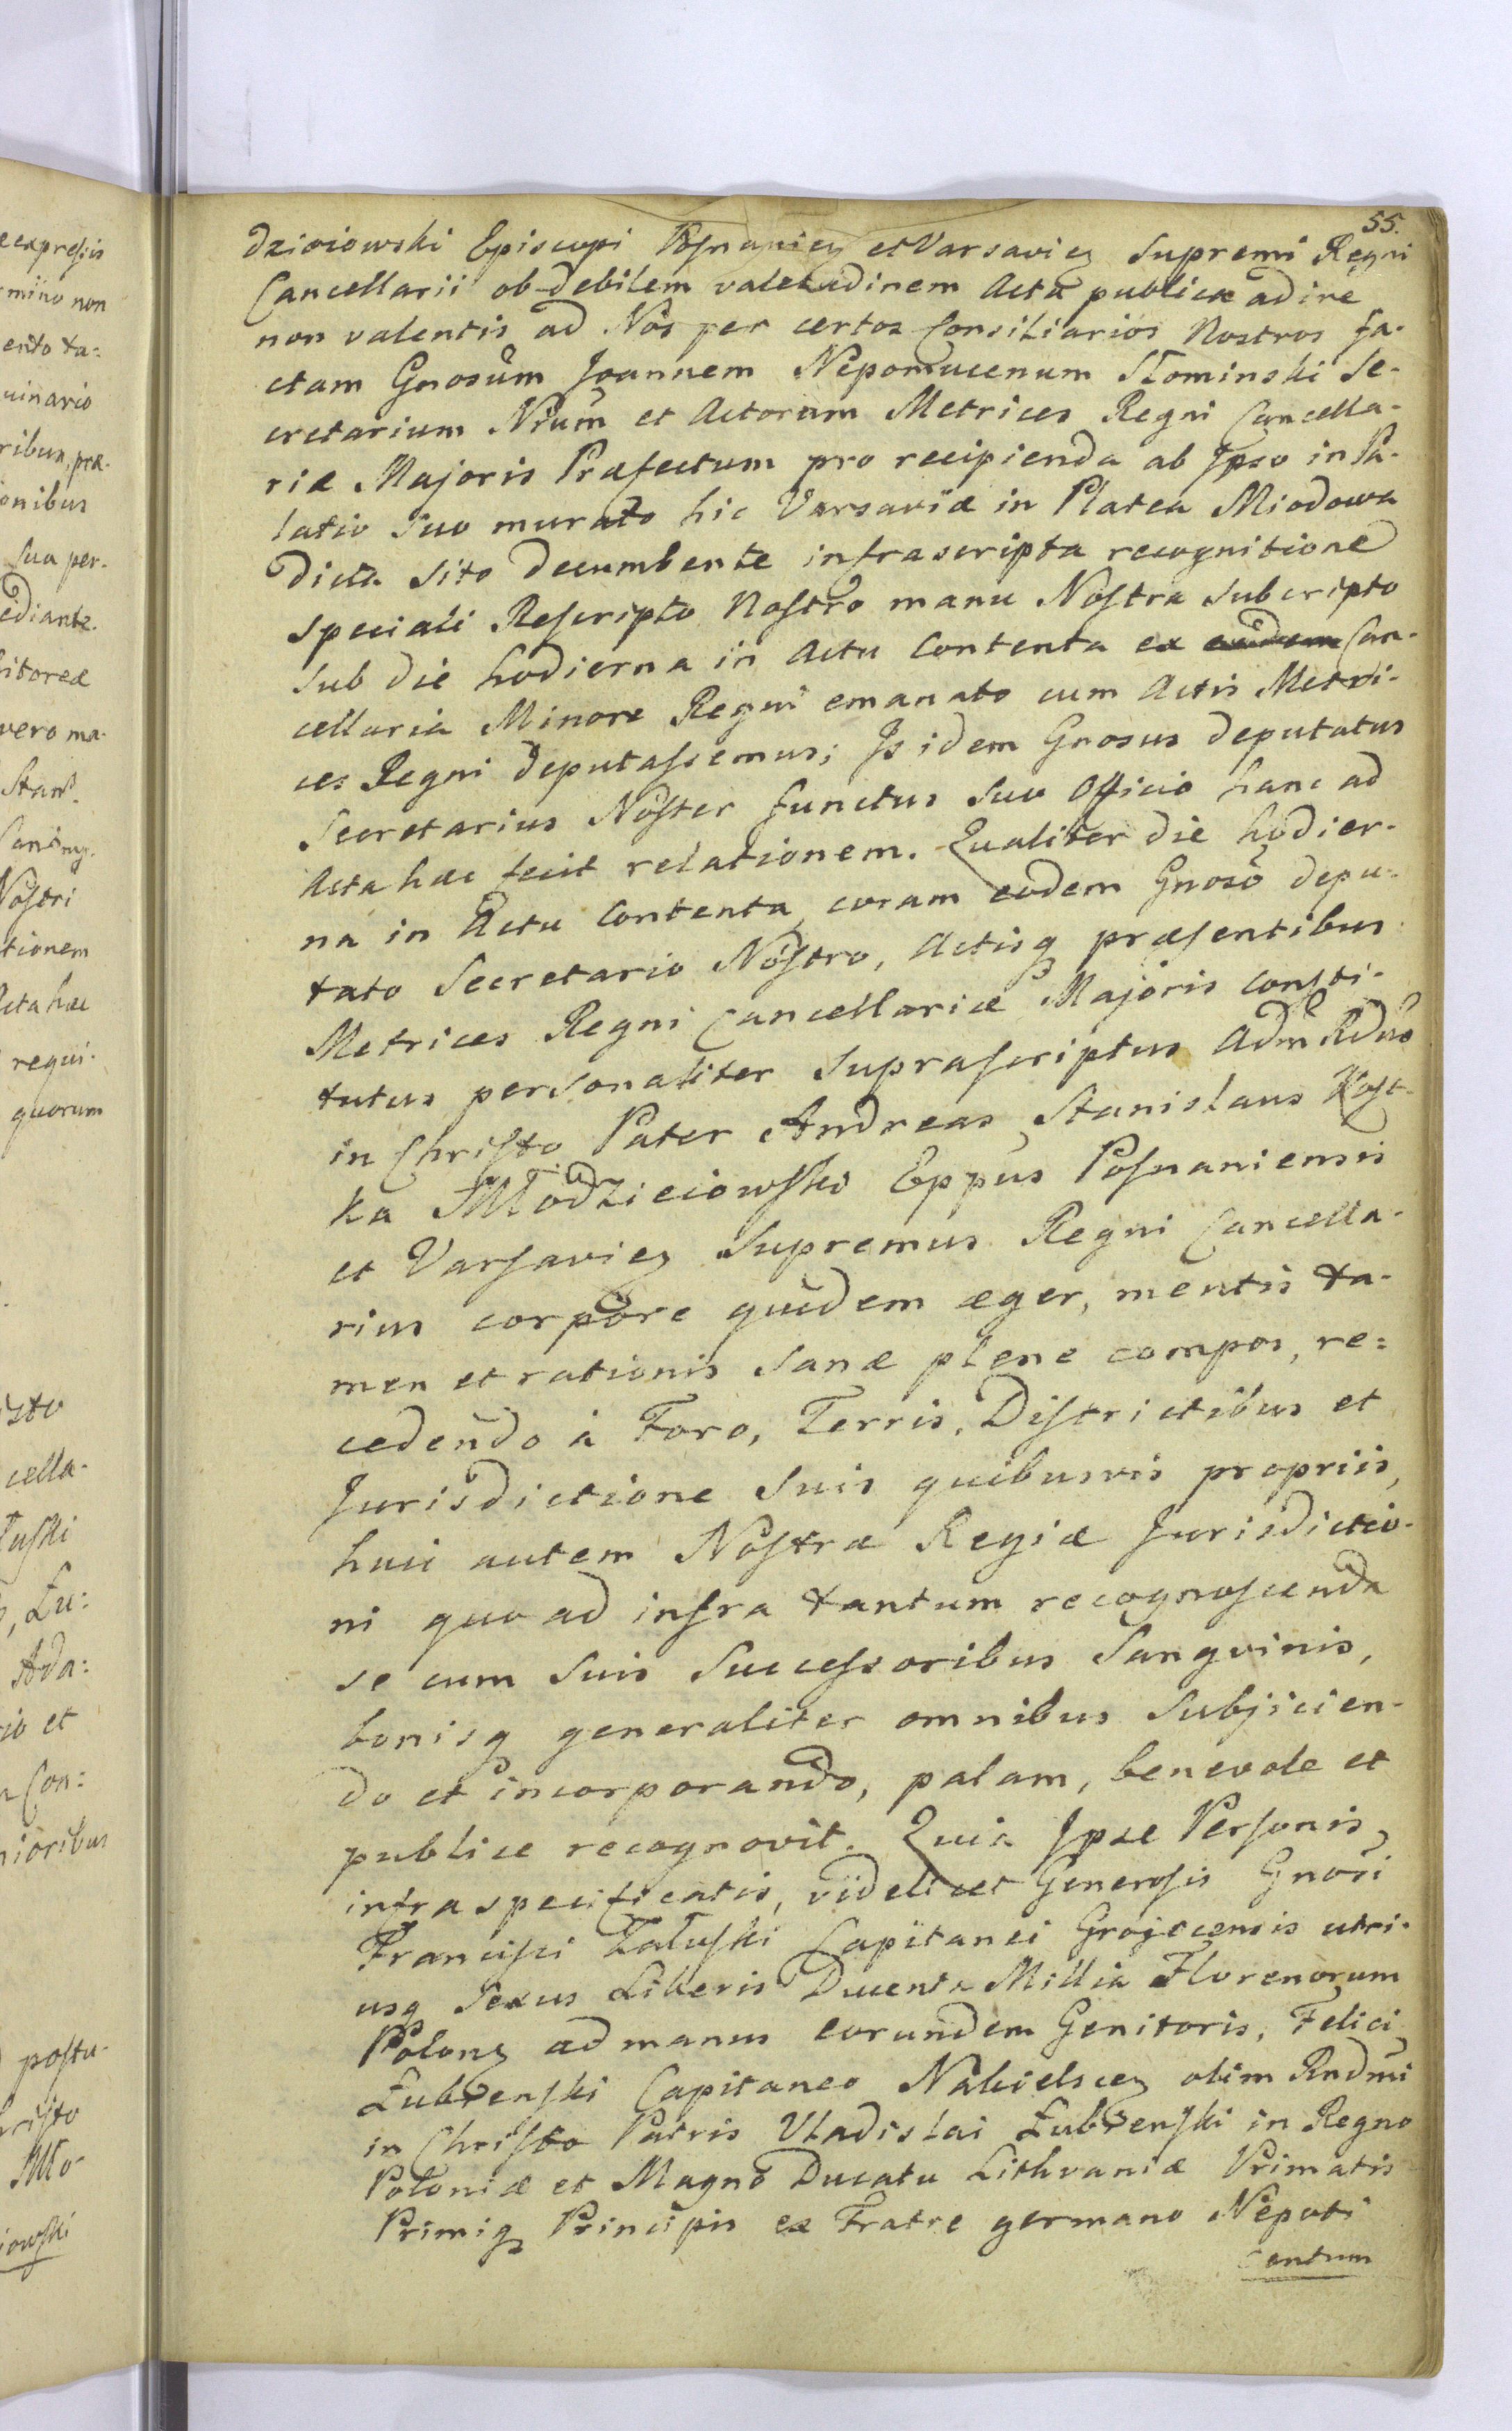 55.
dzieiowski Episcopi Posnanien et Varsavien Supremi Regni
Cancellarii ob debilem valetudinem Acta publica adire
non valentis ad Nos per certos Consiliarios Nostros fa-
ctam Gnosum Joannem Nepomucenum Słominski Se-
cretarium Nrum et Actorum Metrices Regni Cancella-
riæ Majoris Præfectum pro recipienda ab Ipso in Pa-
latio Suo murato hic Varsaviæ in Platea Miodowa
dicta sito decumbente infrascripta recognitione
speciali Rescripto Nostro manu Nostra subcripto
sub die hodierna in Actu Contenta ex Can-
cellaria Minore Regni emanato cum Actis Metri-
ces Regni deputassemus; Is idem Gnosus deputatus
Secretarius Noster functus suo Officio hanc ad
Acta hæc fecit relationem. Qualiter die hodier-
na in Actu Contenta, coram eodem Gnoso depu-
tato Secretario Nostro, Actisq præsentibus
Metrices Regni Cancellariæ Majoris consti-
tutus personaliter Suprascriptus Adm Rdus
in Christo Pater Andreas Stanislaus Kost-
ka Młodzieiowski Eppus Posnaniensis
et Varsavien Supremus Regni Cancella-
rius corpore quidem æger, mentis ta-
men et rationis sanæ plene compos, re=
cedendo à Foro, Terris, Districtibus et
Jurisdictione suis quibusvis propriis,
huic autem Nostræ Regiæ Jurisdictio-
ni quo ad infra tantum recognoscenda
se cum suis Successoribus Sangvinis,
bonisq generaliter omnibus Subjicien-
do et incorporando, palam, benevole et
publice recognovit. Quia Ipse Personis
infraspecificatis, videlicet Generosis Gnosi
Francisci Załuski Capitanei Grojecensis utri-
usq Sexus Liberis Ducenta Millia Florenorum
Polon ad manus eorundem Genitoris, Felici
Łubienski Capitaneo Nakielscen olim Rndmi
in Christo Patris Vladislai Łubienski in Regno
Poloniæ et Magno Ducatu Lithvaniæ Primatis
Primiq Principis ex Fratre germano Nepoti
Centum